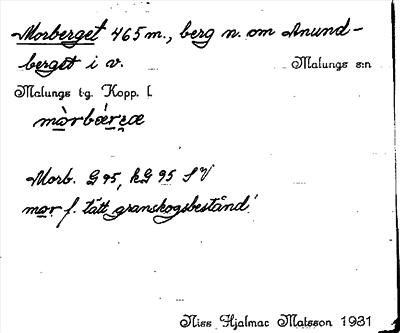 Morberget 465 m., berg n. om Anund-
berget i v. Malungs s:n
Malungs t-g. Kopp. l.
mòrbǽrɛæ
Morb. G 95, kG 95 SV
mor f. 'tätt granskogsbestånd'
Niss Hjalmar Matsson 1931